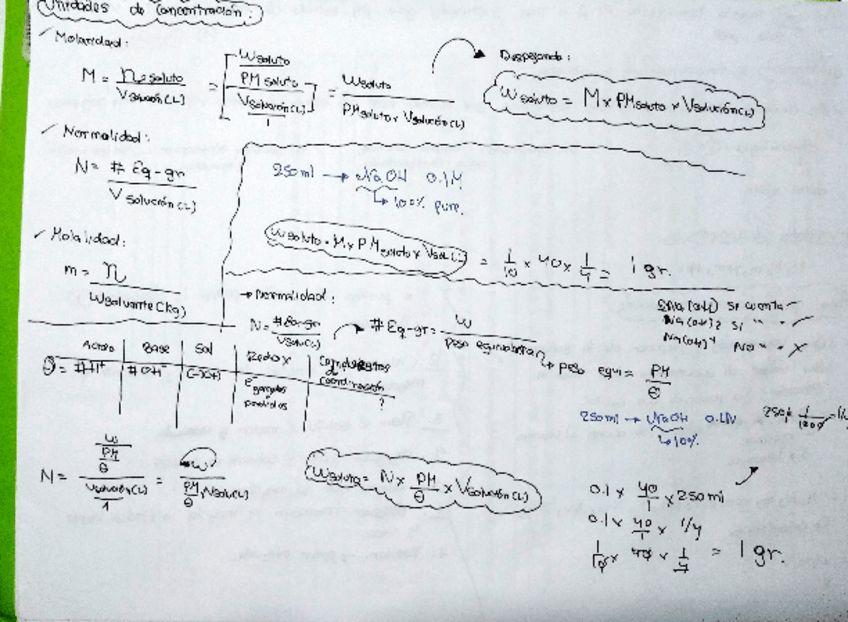 Unidades de Concentración:
✓ Molaridad:
M = n soluto / V solución (L) = [W soluto / PM soluto] / [V solución (L) / 1] = W soluto / PM soluto x V solución (L)
Despejando:
W soluto = M x PM soluto x V solución (L)
✓ Normalidad:
N = # Eq-gr / V solución (L)
250 ml → NaOH 0.1M
↳ 100% pure.
W soluto = M x PM soluto x V sol (L) = 1/10 x 40 x 1/4 = 1 gr.
✓ Molalidad:
m = n / W solvente (kg)
→ Normalidad:
N = # Eq-gr / V sol (L)
# Eq-gr = W / Peso equivalente
↳ Peso equi = PM / θ
(OH) si cuenta
Na(OH)2 si " ✓
Na(OH) No " x
Acido | Base | Sal | Redox | Complejos de coordinación
θ = #H+ | #OH- | | E ganados o perdidos | ?
250 ml → NaOH 0.1N
↳ 100%
250 x 1/1000 = 1/4
N = [W / PM/θ] / [V solución (L) / 1] = W / PM/θ x V sol (L)
W soluto = N x PM/θ x V solución (L)
0.1 x 40/1 x 250 ml
0.1 x 40/1 x 1/4
1/10 x 40 x 1/4 = 1 gr.